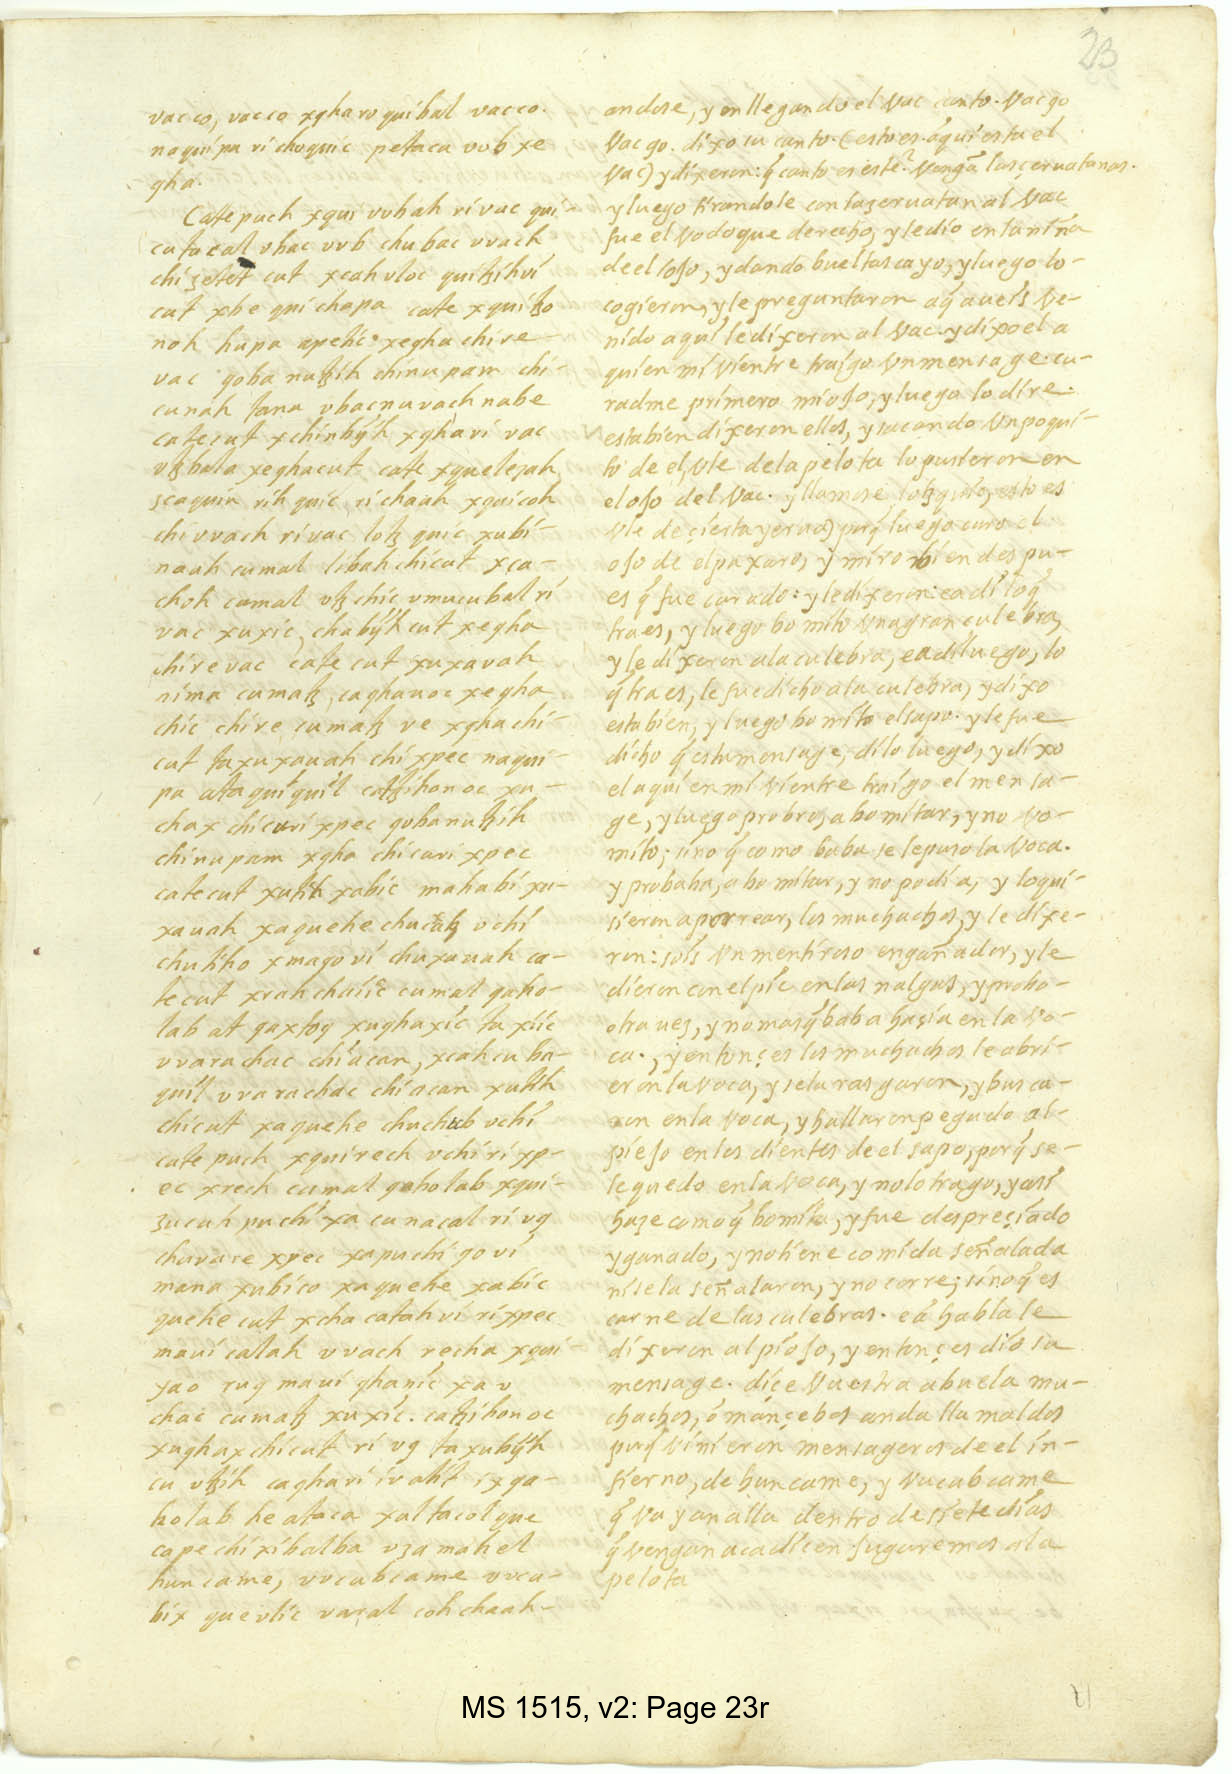 23
vacco, vacco xqharuquibal vacco.
naquipa ri choquic petaca vub xe
qha.
Catepuch xqui vubah ri vac qui-
catacal vbac vub chubac vvach
chi zetet cut xcahvloc quitzihvi
cut xbe quichapa cate xquitzo
noh hupa apetic xeqha chire
vac qoba nutzih chinupam chi-
cunah tana vbacnuvach nabe
catecut xchinbijh xqha ri vac
vtzbala xeqhacut cate xquelezah
zcaquin rih quic, richaah xquicoh
chi vvach ri vac lotz quic xubi-
naah cumal libahchicut xca-
choh cumal vtz chic vmucubal ri
vac xuxic, chabijh cut xeqha
chire vac catecut xuxavah
nima cumatz, caqhauoc xeqha
chic chire cumatz ve xqhachi-
cut taxuxauah chi xpec naqui-
pa ataquiquil catzihonoc xu-
chax chicuri xpec qobanutzih
chinupam xqha chicuri xpec
catecut xutih xabic mahabi xu-
xauah xaquehe chucak vchi
chutiho xmaqo vi chuxauah ca-
tecut xrah chaiic cumal qaho-
lab at qaxtoq xuqhaxic ta xiic
vvarachac chi acan, xcah cu ba-
quil vvarachac chi acan xutih
chicut xaquehe chuchub vchi
catepuch xquirech vchi ri xp-
ec xrech cumal qaholab xqui-
zucuh puchi xa canacal ri vq
chuvare xpec xapuchi qo vi
mana xubico xaquehe xabic
quehe cut xcha catah vi ri xpec
maui catah vvach recha xqui-
yao ruq maui qhanic xa v
chac cumatz xuxic. catzihonoc
xuqhaxchicut ri vq taxubijh
cu vtzih caqhari ivatit ix qa-
holab he ataca xaltacolque
cape chi xibalba vzamahel
huncame, vvcubcame vvcu-
bix quevlic varal cohchaah-
andose, y en llegando el Vac canto. Vacgo
Vacgo. dixo su canto. (esto es. aqui esta el
Vac) y dixeron: q̃ canto es este? Vengã las ceruatanas.
y luego tirandole con la zeruatan al Vac
fue el bodoque derecho, y le dio en la niña
de el ojo, y dando bueltas cayo, y luego lo-
cogieron, y le preguntaron a q̃ aueis Ve-
nido aqui le dixeron al Vac. y dixo el a
qui en mi vientre traigo Vn mensage. cu-
radme primero mi ojo, y luego lo dire.
esta bien dixeron ellos, y sacando Vn poqui-
to de el Vle de la pelota lo pusieron en
el ojo del Vac. y llamose lotzquic, esto es
Vle de çierta yerua) porq̃ luego curo el
ojo de el paxaro, y miro bien despu-
es q̃ fue curado: y le dixeron: ea di lo q̃
traes, y luego bomito Vna gran culebra,
y le dixeron a la culebra, ea di luego, lo
q̃ traes, le fue dicho a la culebra, y dixo
esta bien, y luego bomito el sapo. y le fue
dicho q̃ es tu mensage, dilo luego, y dixo
el aqui en mi Vientre traigo el mensa-
ge, y luego probo, a bomitar, y no Vo-
mito, sino q̃ como baba se le puso la Voca.
y probaba, a bomitar, y no podia, y lo qui-
sieron aporrear, los muchachos, y le dixe-
ron: sois Vn mentiroso engañador, y le
dieron con el pie en las nalgas, y probo-
otra uez, y no mas q̃ baba hazia en la Vo-
ca., y entonçes los muchachos le abri-
eron la Voca, y se la rasgaron, y busca-
ron en la Voca, y hallaron pegado al-
piejo en los dientes de el sapo, porq̃ se-
le quedo en la Voca, y no lo trago, y assi
haze como q̃ bomita, y fue despreçiado
y ganado, y no tiene comida señalada
ni se la señalaron, y no corre, sino q̃ es
carne de las culebras. ea habla le
dixeron al piojo, y entonçes dio su
mensage. diçe Vuestra abuela mu-
chachos, o mançebos anda llamaldos
porq̃ vinieron mensageros de el in-
fierno, de huncame, y Vucubcame
q̃ Vayan alla dentro de siete dias
q̃ vengan aca diçen jugaremos a la
pelota
MS 1515, v2: Page 23r